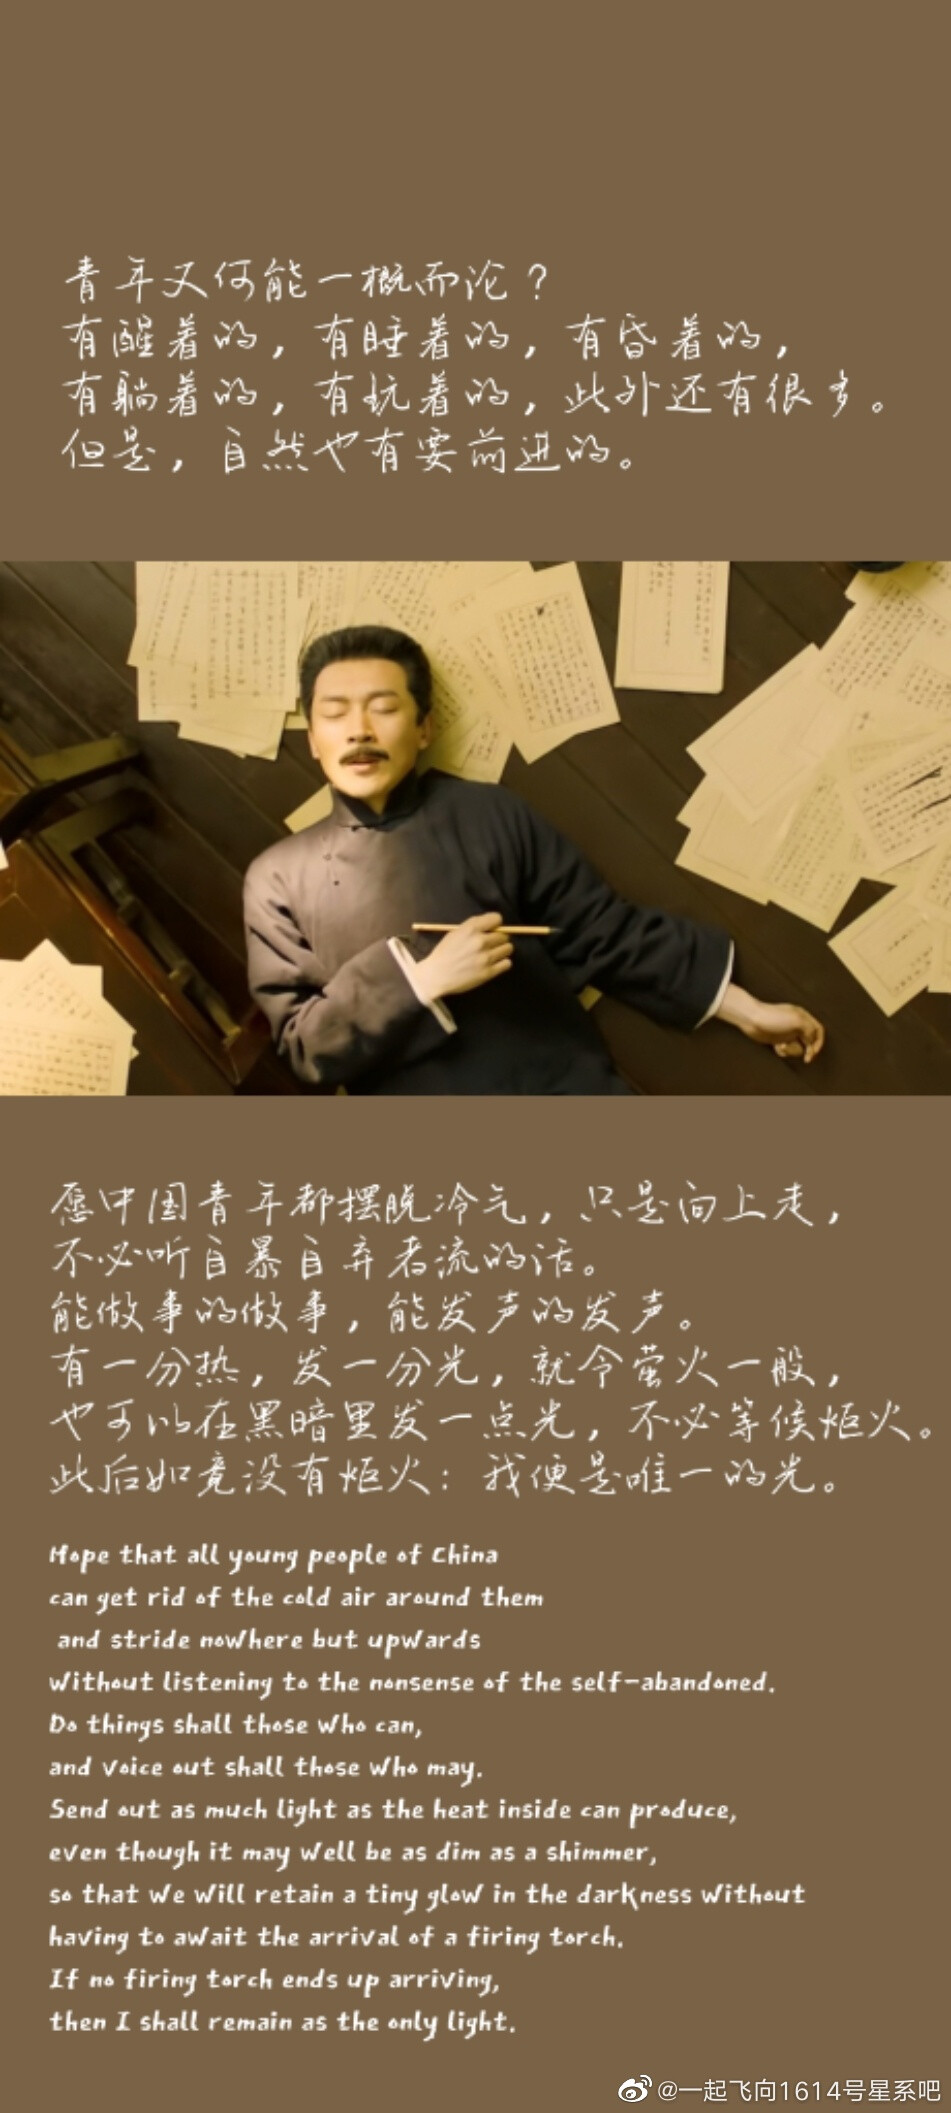 青年又何能一概而论？
有醒着的，有睡着的，有昏着的，
有躺着的，有玩着的，此外还有很多。
但是，自然也有要前进的。
愿中国青年都摆脱冷气，只是向上走，
不必听自暴自弃者流的话。
能做事的做事，能发声的发声。
有一分热，发一分光，就令萤火一般，
也可以在黑暗里发一点光，不必等候炬火。
此后如竟没有炬火：我便是唯一的光。
Hope that all young people of China
can get rid of the cold air around them
and stride nowhere but upwards
without listening to the nonsense of the self-abandoned.
Do things shall those who can,
and voice out shall those who may.
Send out as much light as the heat inside can produce,
even though it may well be as dim as a shimmer,
so that we will retain a tiny glow in the darkness without
having to await the arrival of a firing torch.
If no firing torch ends up arriving,
then I shall remain as the only light.
@一起飞向1614号星系吧